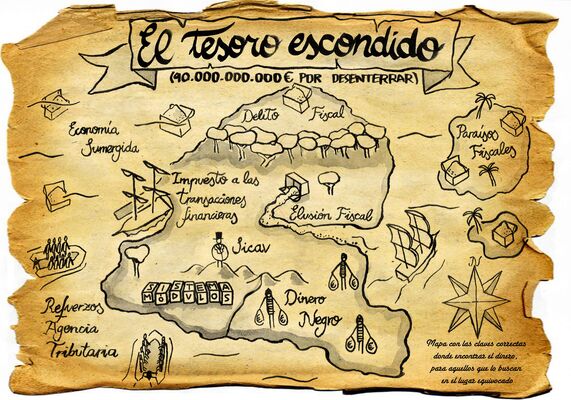 El tesoro escondido
(40.000.000.000€ POR DESENTERRAR)
Delito Fiscal
Economía
Sumergida
Paraísos
Fiscales
Impuesto a las
transacciones
financieras
Elusión Fiscal
Sicav
SISTEMA
MÓDULOS
Dinero
Negro
€ €
€ €
€ €
Refuerzos
Agencia
Tributaria
N
Mapa con las claves correctas
donde encontrar el dinero,
para aquellos que lo buscan
en el lugar equivocado